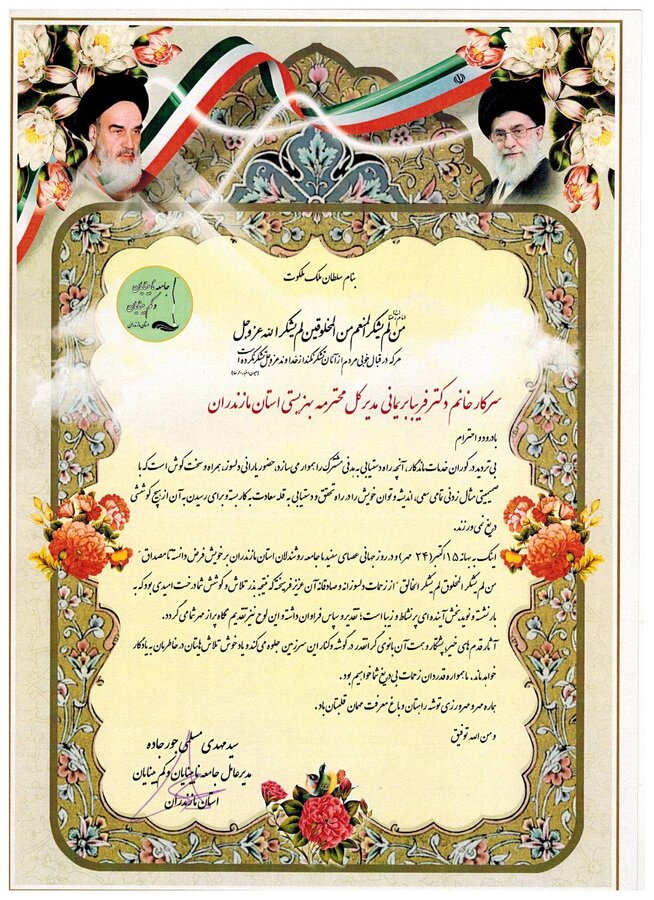 بنام سلطان ملک ملکوت
جامعه نابینایان
و کم بینایان
استان مازندران
امام رضا
من لم یشکر المنعم من المخلوقین لم یشکر الله عز و جل
هر که در قبال خوبی مردم از آنان تشکر نکند از خداوند عز و جل تشکر نکرده است
(عیون اخبار الرضا)
سرکار خانم دکتر فریبا بریمانی مدیر کل محترمه بهزیستی استان مازندران
با درود و احترام
بی تردید در کوران خدمات ماندگار، آنچه راه دستیابی به هدفی مشترک را هموار می سازد، حضور یارانی دلسوز، همراه و سخت کوش است که با
صمیمیتی مثال زدنی تمامی سعی، اندیشه و توان خویش را در راه تحقق و دستیابی به قله سعادت به کار بسته و برای رسیدن به آن از هیچ کوششی
دریغ نمی ورزند.
اینک به بهانه ۱۵ اکتبر (۲۴ مهر) و در روز جهانی عصای سفید با جامعه روشندلان استان مازندران بر خویش فرض دانسته تا مصداق "
من لم یشکر المخلوق لم یشکر الخالق" از زحمات دلسوزانه و صادقانه آن عزیز فریخته که نتیجه بذر تلاش و کوشش شما درخت امیدی بود که به
بار نشسته و نوید بخش آینده ای پر نشاط و زیبا است؛ تقدیر و سپاس فراوان داشته و این لوح نیز تقدیم نگاه پر از مهر شما می گردد.
آثار قدم های خیر، پشتکار و همت آن بانوی گرانقدر در گوشه و کنار این سرزمین جلوه می کند و یاد خوش تلاش هایتان در خاطرمان به یادگار
خواهد ماند. ما همواره قدردان زحمات بی دریغ شما خواهیم بود.
هماره مهر و مهرورزی توشه راهتان و باغ معرفت مهمان قلبتان باد.
و من الله توفیق
سید مهدی مسلمی جورجاده
مدیرعامل جامعه نابینایان و کم بینایان
استان مازندران